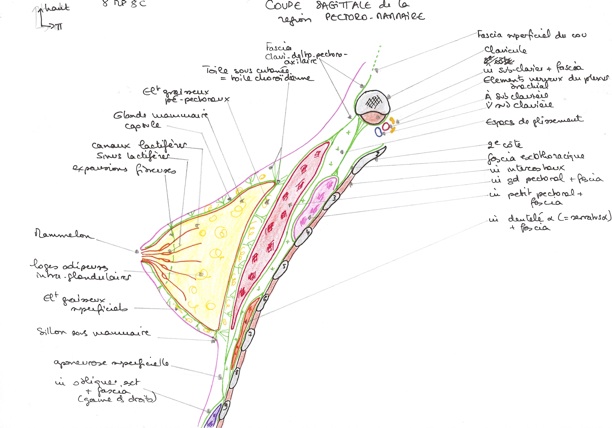 haut
COUPE SAGITTALE de la
région PECTORO-MAMMAIRE
Fascia
Clavi-delto-pectoro-
axilaire
Toile sous cutanée
= toile choroïdienne
Elt graisseux
pré-pectoraux
Glande mammaire
capsule
canaux lactifères
Sinus lactifères
expansions fibreuses
Mammelon
loges adipeuses
intra-glandulaires
Elt graisseux
superficiels
Sillon sous mammaire
aponévrose superficielle
m obliques ext
+ fascia
(gaine d droits)
Fascia superficiel du cou
Clavicule
m sub-clavier + fascia
Elements nerveux du plexus
brachial
A subclavière
V subclavière
Espace de glissement
2e côte
fascia exothoracique
m intercostaux
m gd pectoral + fascia
m petit pectoral +
fascia
m dentelé
+ fascia